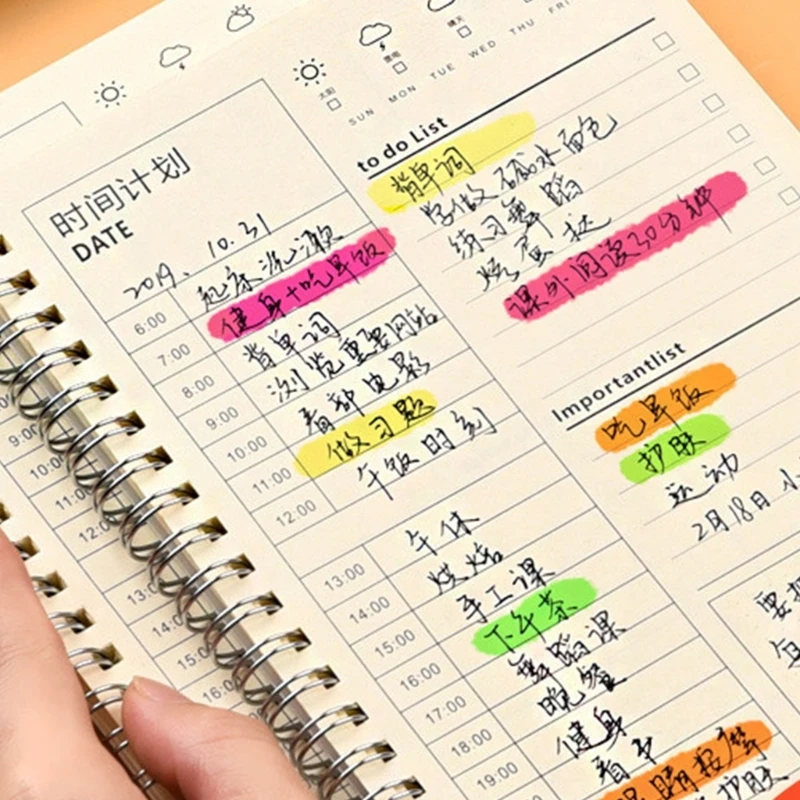 SUN MON TUE WED THU FRI
时间计划
DATE
2019. 10.31
6:00 起床洗漱
7:00 健身+吃早饭
8:00 背单词
浏览重要网站
9:00 看部电影
10:00 做习题
11:00 午饭时刻
12:00
13:00 午休
14:00 烘焙
15:00 手工课
下午茶
16:00 舞蹈课
17:00 晚餐
18:00 健身
19:00 看书
眼睛按摩
护肤
to do List
背单词
学做碱水面包
练习舞蹈
烤蛋挞
课外阅读30分钟
Importantlist
吃早饭
护肤
运动
2月18日 小
要
每
9:00
10:00
11:00
12:00
13:0
14:00
15:00
16:00